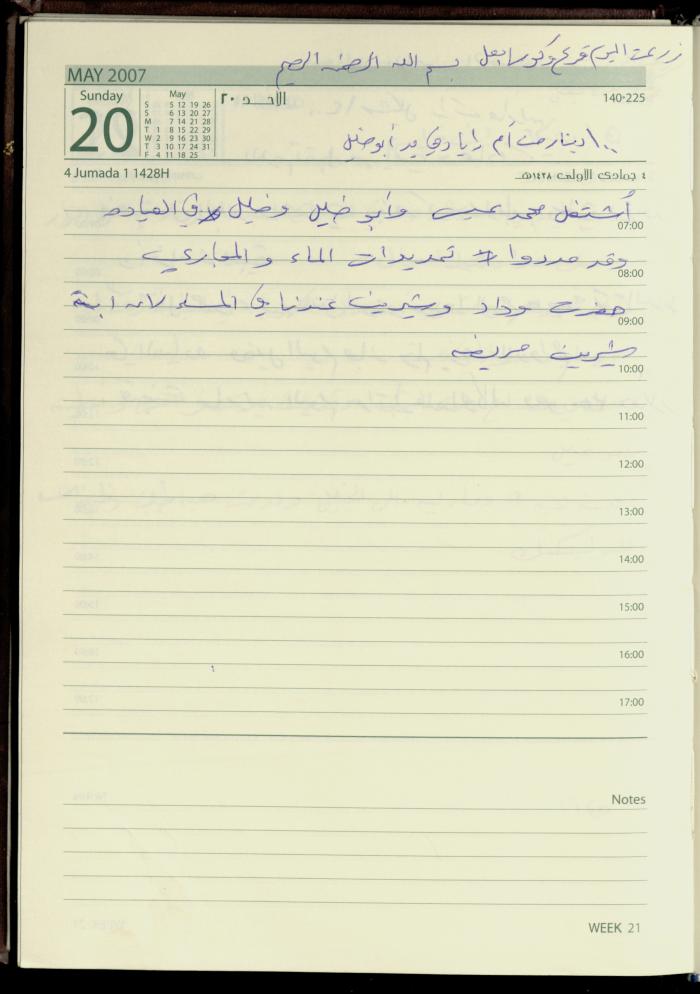 زرعت اليوم قرع وكوسا بعل بسم الله الرحمن الرحيم
MAY 2007
Sunday
20
May
S 5 12 19 26
S 6 13 20 27
M 7 14 21 28
T 1 8 15 22 29
W 2 9 16 23 30
T 3 10 17 24 31
F 4 11 18 25
الأحد ٢٠
140-225
١٠٠ دينار من أم رايا دفع يد أبو خليل
4 Jumada 1 1428H
٤ جمادى الأولى ١٤٢٨هـ
أشتغل محمد عيسى وأبو خليل وخليل في العياده
07:00
وقد مددوا تمديدات الماء والمجاري
08:00
حضرت وداد وشيرين عندنا في المساء لان ابنة
09:00
شيرين مريضه
10:00
11:00
12:00
13:00
14:00
15:00
16:00
17:00
Notes
WEEK 21